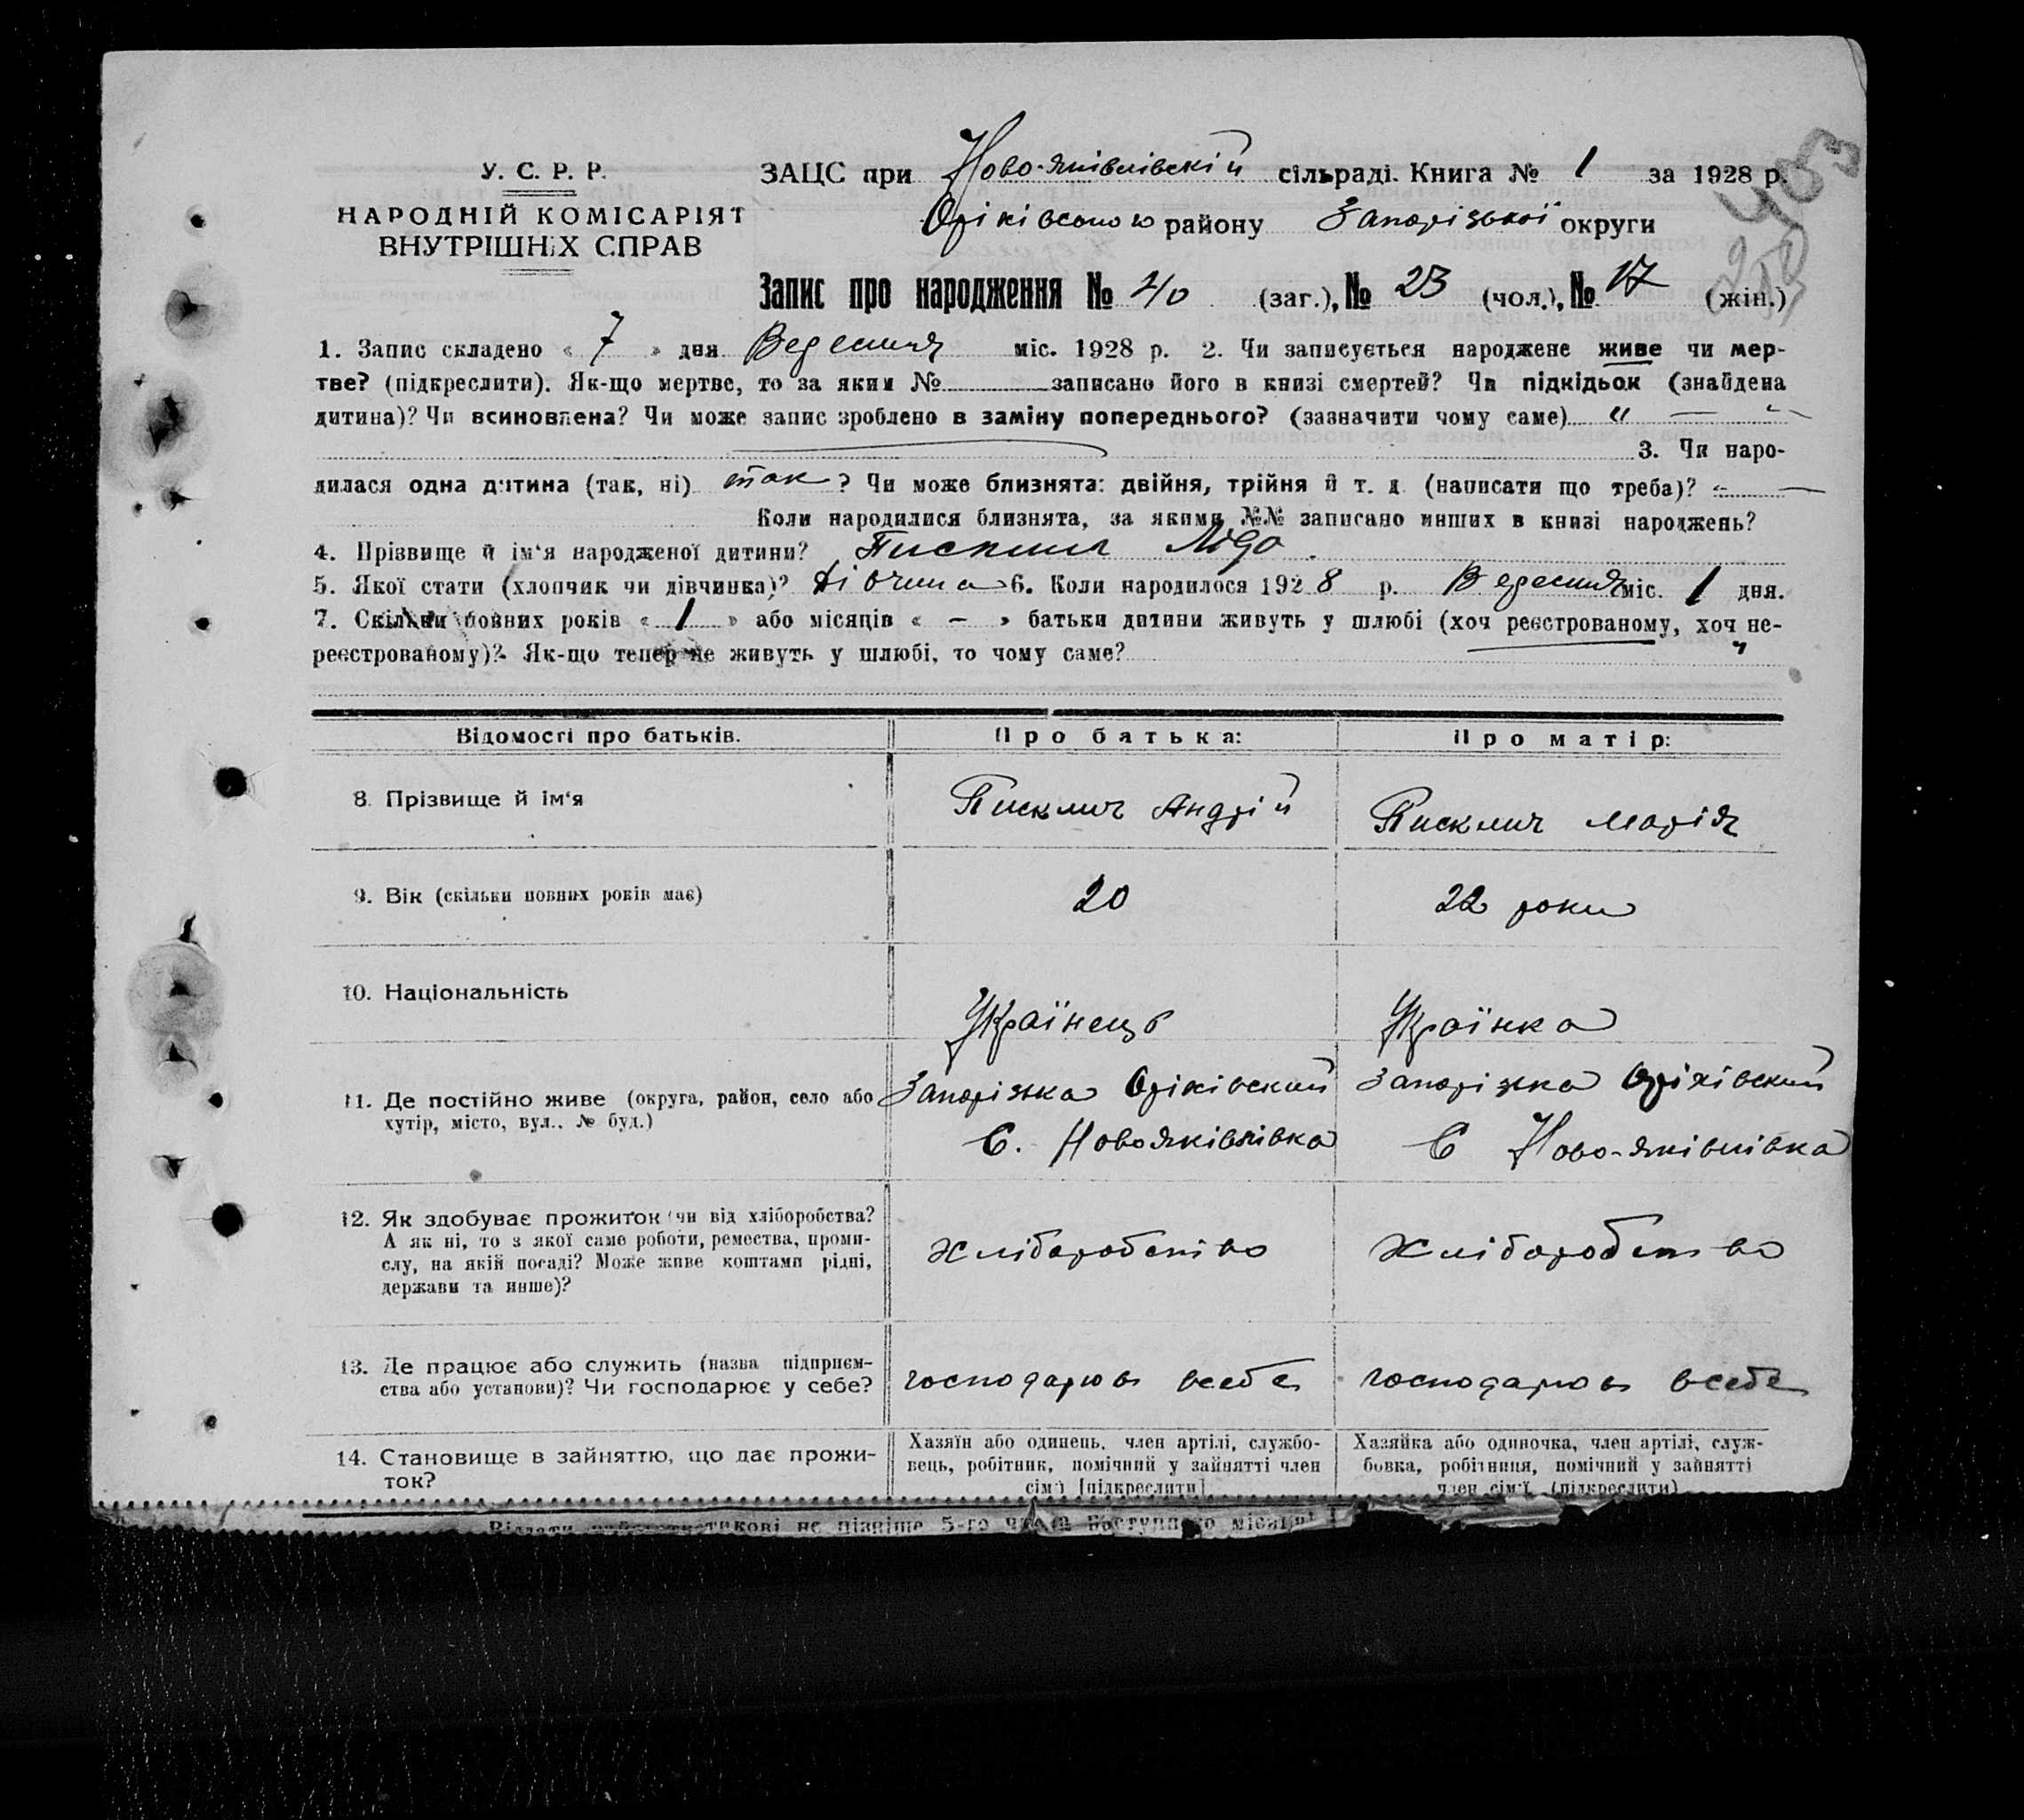 У. С. Р. Р.
НАРОДНІЙ КОМІСАРІЯТ
ВНУТРІШНІХ СПРАВ
ЗАЦС при Ново-Яківлівскій сільраді. Книга № 1 за 1928 р.
Оріхівского району Запорізької округи
Запис про народження № 40 (заг.), № 23 (чол.), № 17 (жін.)
1. Запис складено « 7 » дня Вересня міс. 1928 р. 2. Чи записується народжене живе чи мер-
тве? (підкреслити). Як-що мертве, то за яким № записано його в книзі смертей? Чи підкідьок (знайдена
дитина)? Чи всиновлена? Чи може запис зроблено в заміну попереднього? (зазначити чому саме) „ —
3. Чи наро-
дилася одна дитина (так, ні) так ? Чи може близнята: двійня, трійня й т. д. (написати що треба)? —
Коли народилися близнята, за якими №№ записано инших в книзі народжень?
4. Прізвище й ім‘я народженої дитини? Писклич Ліда
5. Якої стати (хлопчик чи дівчинка)? Дівчина 6. Коли народилося 1928 р. Вересня міс. 1 дня.
7. Скільки повних років « 1 » або місяців « – » батьки дитини живуть у шлюбі (хоч реєстрованому, хоч не-
реєстрованому)? Як-що тепер не живуть у шлюбі, то чому саме?
Відомості про батьків. Про батька: Про матір:
8. Прізвище й ім‘я Писклич Андрій Писклич Марія
9. Вік (скільки повних років має) 20 22 роки
10. Національність Українець Українка
11. Де постійно живе (округа, район, село або
хутір, місто, вул., № буд.)
Запоріжка Оріхівский
С. Новояківлівка
Запоріжка Оріхівский
С Ново-Яківлівка
12. Як здобуває прожиток (чи від хліборобства?
А як ні, то з якої саме роботи, ремества, проми-
слу, на якій посаді? Може живе коштами рідні,
держави та инше)?
Хліборобство Хліборобство
13. Де працює або служить (назва підприєм-
ства або установи)? Чи господарює у себе?
господарює всебе господарює всебе
14. Становище в зайняттю, що дає прожи-
ток?
Хазяїн або одинець, член артілі, службо-
вець, робітник, помічний у зайнятті член
сім'ї [підкреслити]
Хазяйка або одиночка, член артілі, служ-
бовка, робітниця, помічний у зайнятті
член сім'ї (підкреслити)
не пізніше 5-го числа наступного місяця